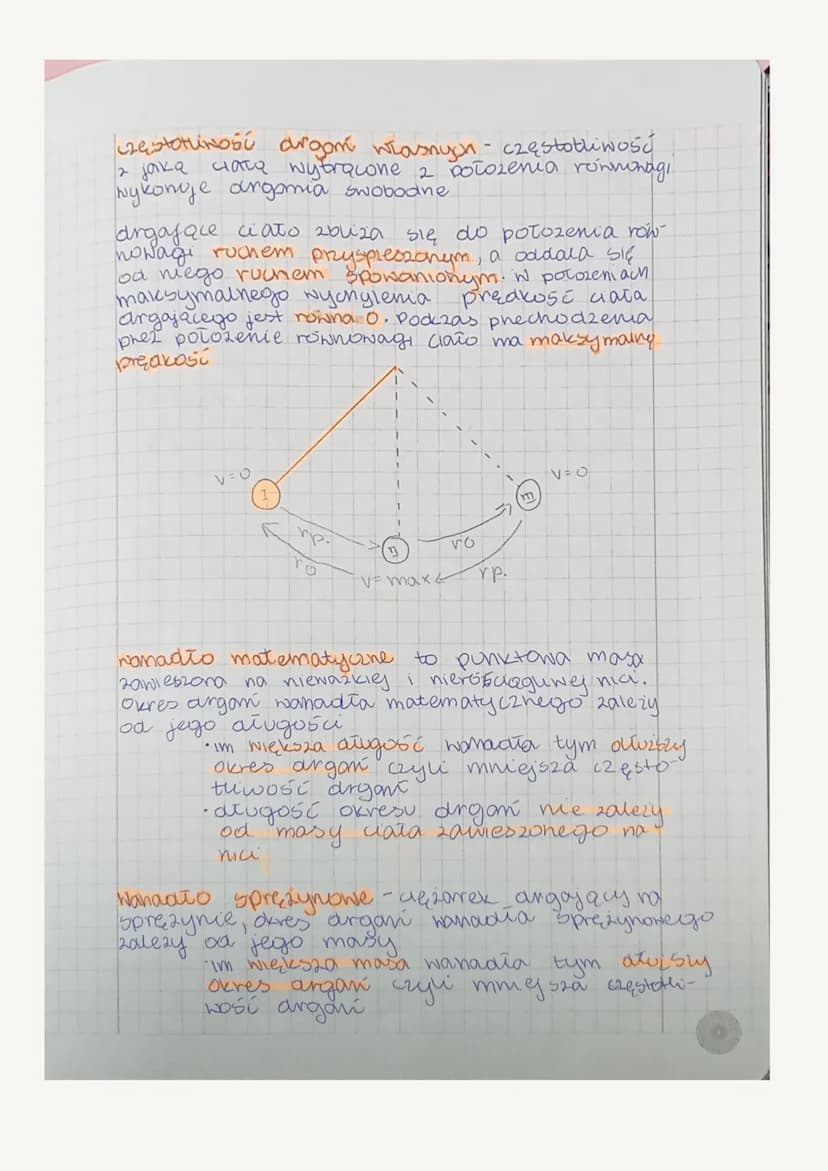 częstotliwość drgań własnych - częstotliwość
z jaką ciała wytrącone z położenia równowagi
wykonuje drgania swobodne
drgające ciało zbliża się do położenia rów-
nowagi ruchem przyspieszonym, a oddala się
od niego ruchem spowanionym. w położeniach
maksymalnego wychylenia prędkość ciała
drgającego jest równa 0. Podczas przechodzenia
przez położenie równowagi ciało ma maksymalną
prędkość
v=0
v=0
I
III
II
rp.
ro
ro
v=max
rp.
wahadło matematyczne to punktowa masa
zawieszona na nieważkiej i nierozciągliwej nici.
Okres drgań wahadła matematycznego zależy
od jego długości
•im większa długość wahadła tym dłuższy
okres drgań czyli mniejsza często-
tliwość drgań
•długość okresu drgań nie zależy
od masy ciała zawieszonego na
nici
Wahadło sprężynowe - ciężarek drgający na
sprężynie, okres drgań wahadła sprężynowego
zależy od jego masy
•im większa masa wahadła tym dłuższy
okres drgań czyli mniejsza częstotli-
wość drgań